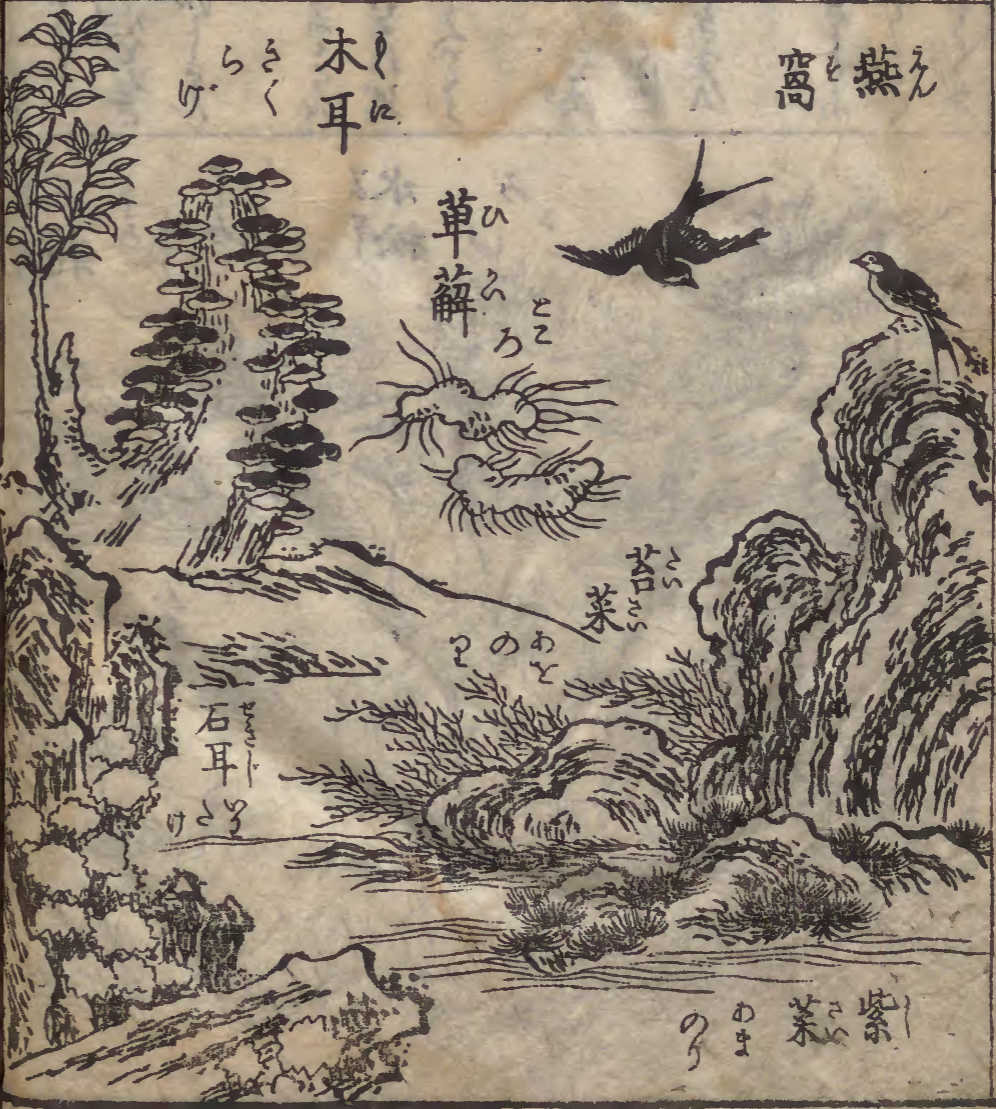 燕窩
えんを
木耳
もくに
きくらげ
萆薢
ひかい
ところ
苔菜
たいさい
あをのり
石耳
せきじ
いはたけ
紫菜
しさい
あまのり